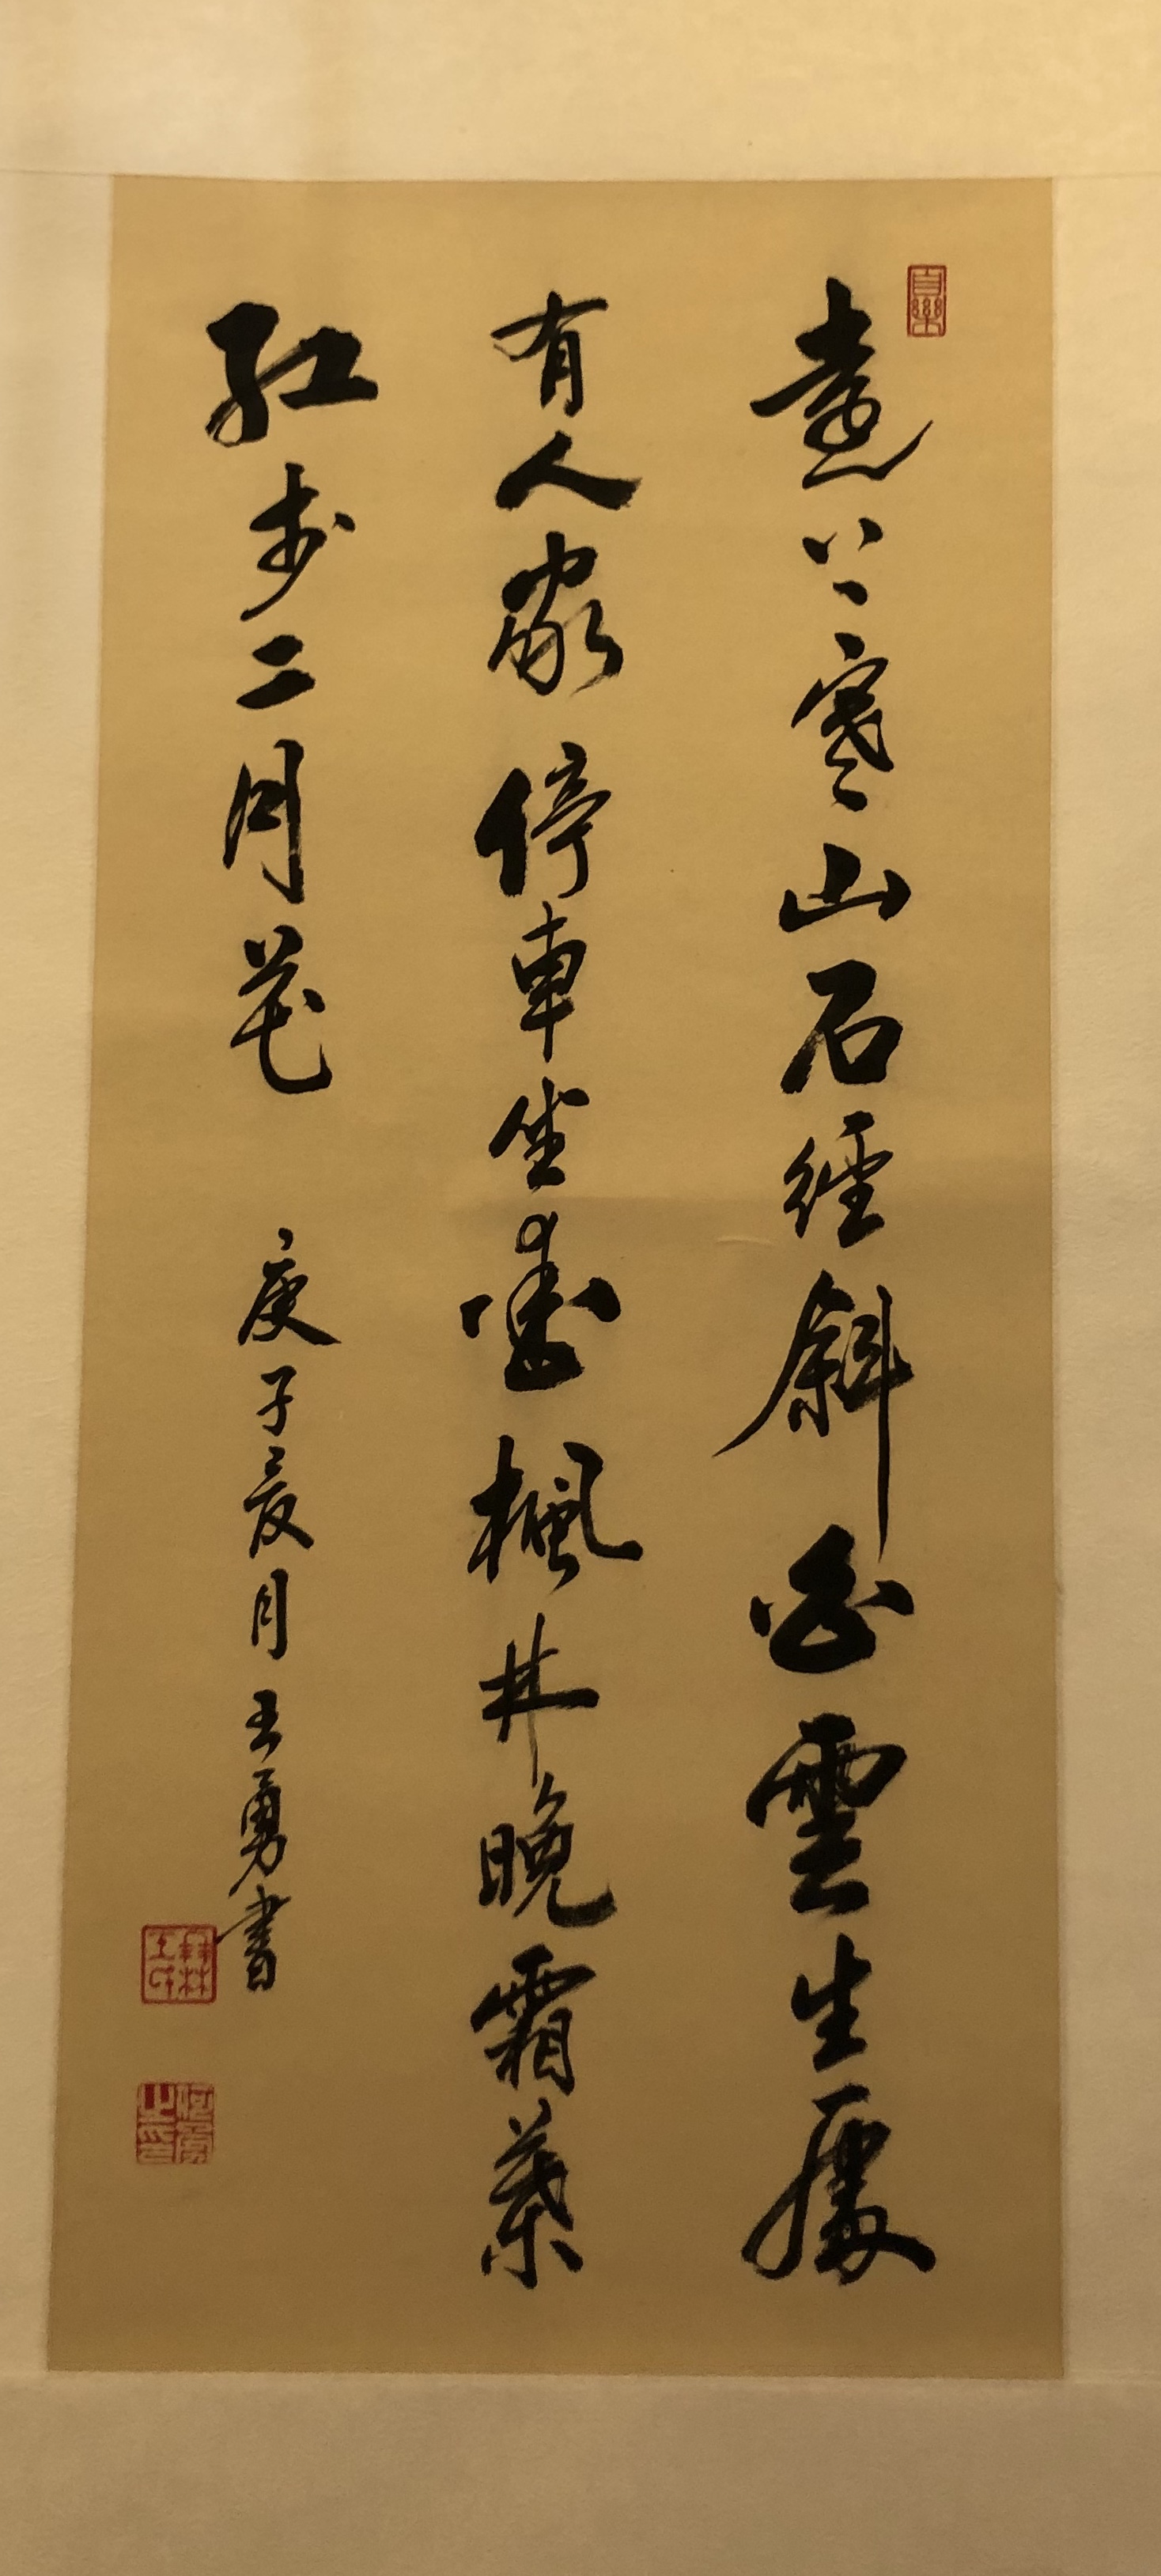 遠上寒山石徑斜白雲生處
有人家停車坐愛楓林晚霜葉
紅於二月花 庚子夏月 王勇書